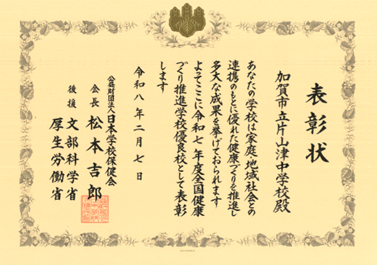 表彰状
加賀市立片山津中学校殿
あなたの学校は家庭、地域社会との
連携のもとに優れた健康づくりを推進し
多大な成果を挙げておられます
よってここに令和七年度全国健康
づくり推進学校優良校として表彰
します
令和八年二月七日
公益財団法人日本学校保健会
会長 松本吉郎
後援 文部科学省
厚生労働省